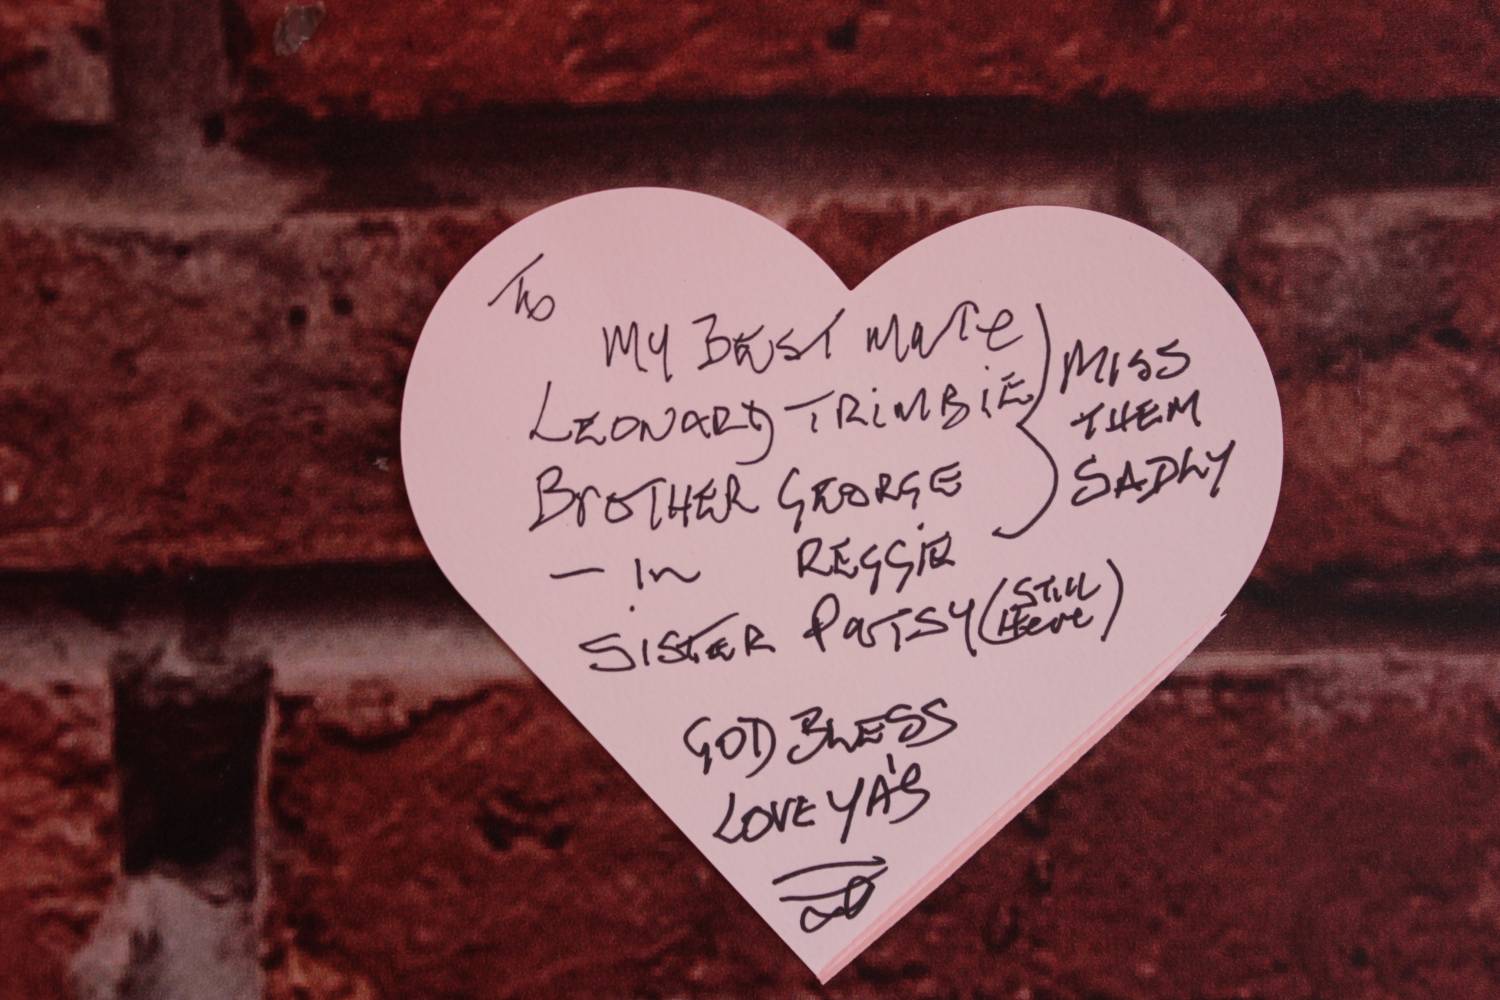 To
My BEST MaTe
LEONARD TRiMBiE
BroTHER GEORGE
- in REGGiE
SiSTER PaTSY (STiLL Here)
GOD BLESS
LOVE YA'S
MISS
THEM
SADLY